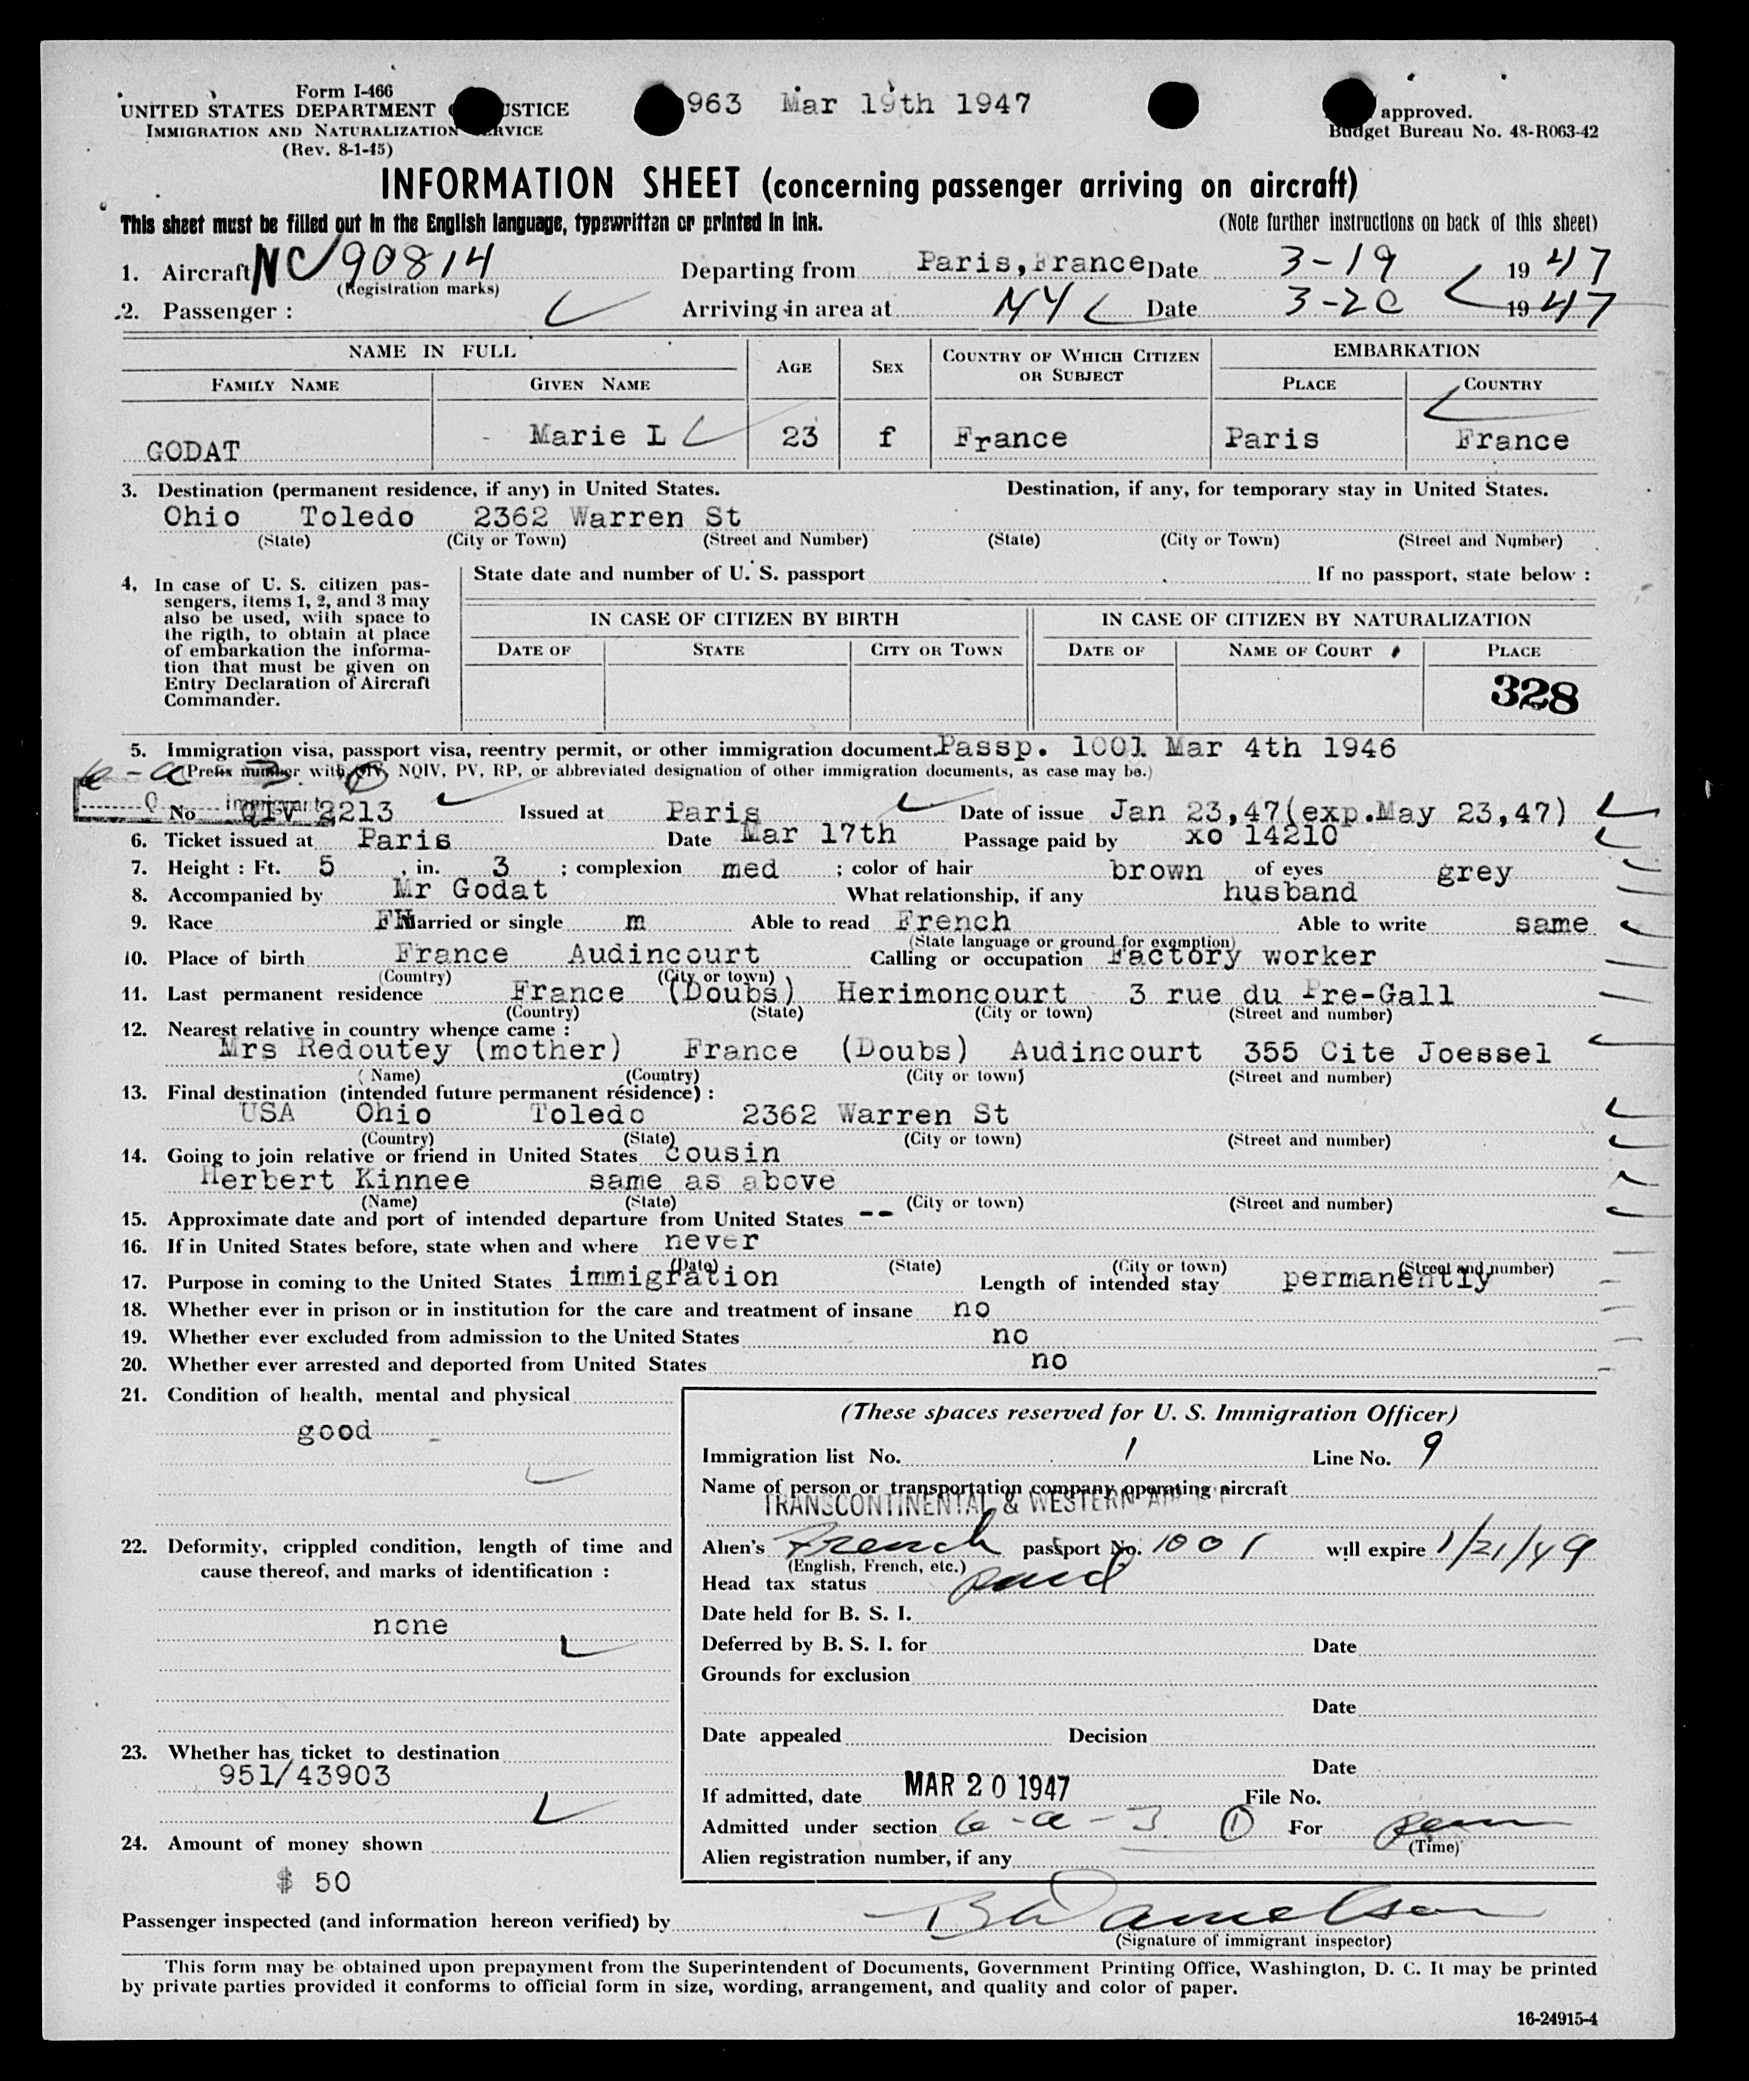 Form I-466
UNITED STATES DEPARTMENT JUSTICE
IMMIGRATION AND NATURALIZATION SERVICE
(Rev. 8-1-45)
963 Mar 19th 1947
approved.
Budget Bureau No. 48-R063-42
INFORMATION SHEET (concerning passenger arriving on aircraft)
This sheet must be filled out in the English language, typewritten or printed in ink. (Note further instructions on back of this sheet)
1. Aircraft NC 90814 Departing from Paris, France Date 3-19 1947
(Registration marks)
2. Passenger : Arriving in area at NY Date 3-20 1947
NAME IN FULL AGE SEX COUNTRY OF WHICH CITIZEN OR SUBJECT EMBARKATION
FAMILY NAME GIVEN NAME PLACE COUNTRY
GODAT Marie L 23 f France Paris France
3. Destination (permanent residence, if any) in United States. Destination, if any, for temporary stay in United States.
Ohio Toledo 2362 Warren St
(State) (City or Town) (Street and Number) (State) (City or Town) (Street and Number)
4. In case of U. S. citizen pas-
sengers, items 1, 2, and 3 may
also be used, with space to
the rigth, to obtain at place
of embarkation the informa-
tion that must be given on
Entry Declaration of Aircraft
Commander.
State date and number of U. S. passport If no passport, state below :
IN CASE OF CITIZEN BY BIRTH IN CASE OF CITIZEN BY NATURALIZATION
DATE OF STATE CITY OR TOWN DATE OF NAME OF COURT PLACE
328
5. Immigration visa, passport visa, reentry permit, or other immigration document. Passp. 1001 Mar 4th 1946
(Prefix number with QIV, NQIV, PV, RP, or abbreviated designation of other immigration documents, as case may be.)
6-a-3
Q immigrant
No QIV 2213 Issued at Paris Date of issue Jan 23,47(exp.May 23,47)
6. Ticket issued at Paris Date Mar 17th Passage paid by xo 14210
7. Height : Ft. 5 , in. 3 ; complexion med ; color of hair brown of eyes grey
8. Accompanied by Mr Godat What relationship, if any husband
9. Race FH Married or single m Able to read French Able to write same
(State language or ground for exemption)
10. Place of birth France Audincourt Calling or occupation Factory worker
(Country) (City or town)
11. Last permanent residence France (Doubs) Herimoncourt 3 rue du Pre-Gall
(Country) (State) (City or town) (Street and number)
12. Nearest relative in country whence came :
Mrs Redoutey (mother) France (Doubs) Audincourt 355 Cite Joessel
(Name) (Country) (City or town) (Street and number)
13. Final destination (intended future permanent résidence) :
USA Ohio Toledo 2362 Warren St
(Country) (State) (City or town) (Street and number)
14. Going to join relative or friend in United States cousin
Herbert Kinnee same as above
(Name) (State) (City or town) (Street and number)
15. Approximate date and port of intended departure from United States --
16. If in United States before, state when and where never
(Date) (State) (City or town) (Street and number)
17. Purpose in coming to the United States immigration Length of intended stay permanently
18. Whether ever in prison or in institution for the care and treatment of insane no
19. Whether ever excluded from admission to the United States no
20. Whether ever arrested and deported from United States no
21. Condition of health, mental and physical
good
22. Deformity, crippled condition, length of time and
cause thereof, and marks of identification :
none
23. Whether has ticket to destination
951/43903
24. Amount of money shown
$ 50
(These spaces reserved for U. S. Immigration Officer)
Immigration list No. 1 Line No. 9
Name of person or transportation company operating aircraft
TRANSCONTINENTAL & WESTERN AIR
Alien's French passport No. 1001 will expire 1/21/49
(English, French, etc.)
Head tax status paid
Date held for B. S. I.
Deferred by B. S. I. for Date
Grounds for exclusion
Date
Date appealed Decision
Date
If admitted, date MAR 20 1947 File No.
Admitted under section 6-a-3 1 For Perm
(Time)
Alien registration number, if any
Passenger inspected (and information hereon verified) by
(Signature of immigrant inspector)
This form may be obtained upon prepayment from the Superintendent of Documents, Government Printing Office, Washington, D. C. It may be printed
by private parties provided it conforms to official form in size, wording, arrangement, and quality and color of paper.
16-24915-4